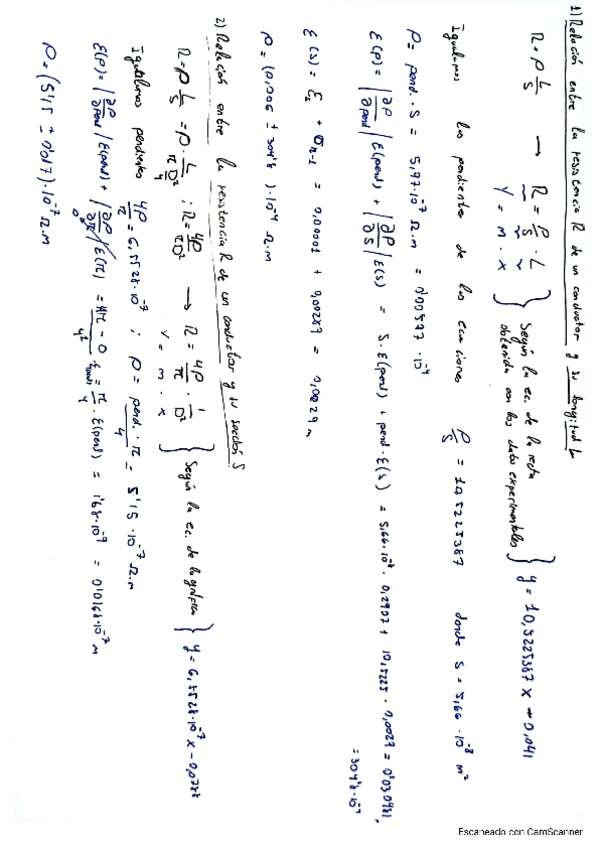 1) Relación entre la resistencia R de un conductor y su longitud L
R = ρ L/S → R = ρ/S · L } Según la ec. de la recta obtenida con los datos experimentales } y = 10,5225387 x + 0,041
y = m · x
Igualamos las pendientes de las ecuaciones ρ/S = 10,5225387 donde S = 5,66 · 10⁻⁸ m²
ρ = pend · S = 5,97·10⁻⁷ Ω.m = 0'00597 · 10⁻⁴
ε(ρ) = |∂ρ/∂pend| ε(pend) + |∂ρ/∂S| ε(s) = S · ε(pend) + pend · ε(s) = 5,66·10⁻⁸ · 0,2907 + 10,5225 · 0,0029 =
ε(s) = + σn-1 = 0,00001 + 0,00287 = 0,0029 m
ρ = (0,006 ± ) · 10⁻⁴ Ω.m
2) Relación entre la resistencia R de un conductor y su sección S
R = ρ L/S = ρ · ; R = → R = 4ρ/π · 1/D² } Según la ec. de la gráfica } y = 6,5528·10⁻⁷ x - 
y = m · x
Igualamos pendientes 4ρ/π = 6,5528·10⁻⁷ ; ρ = pend · π/4 = 5'15 · 10⁻⁷ Ω.m
ε(ρ) = |∂ρ/∂pend| ε(pend) + |∂ρ/∂π| ε(π) = = π/4 · ε(pend) = 1'68·10⁻⁹ = 0'0168·10⁻⁷ m
ρ = (5'15 ± 0'017)·10⁻⁷ Ω.m
Escaneado con CamScanner